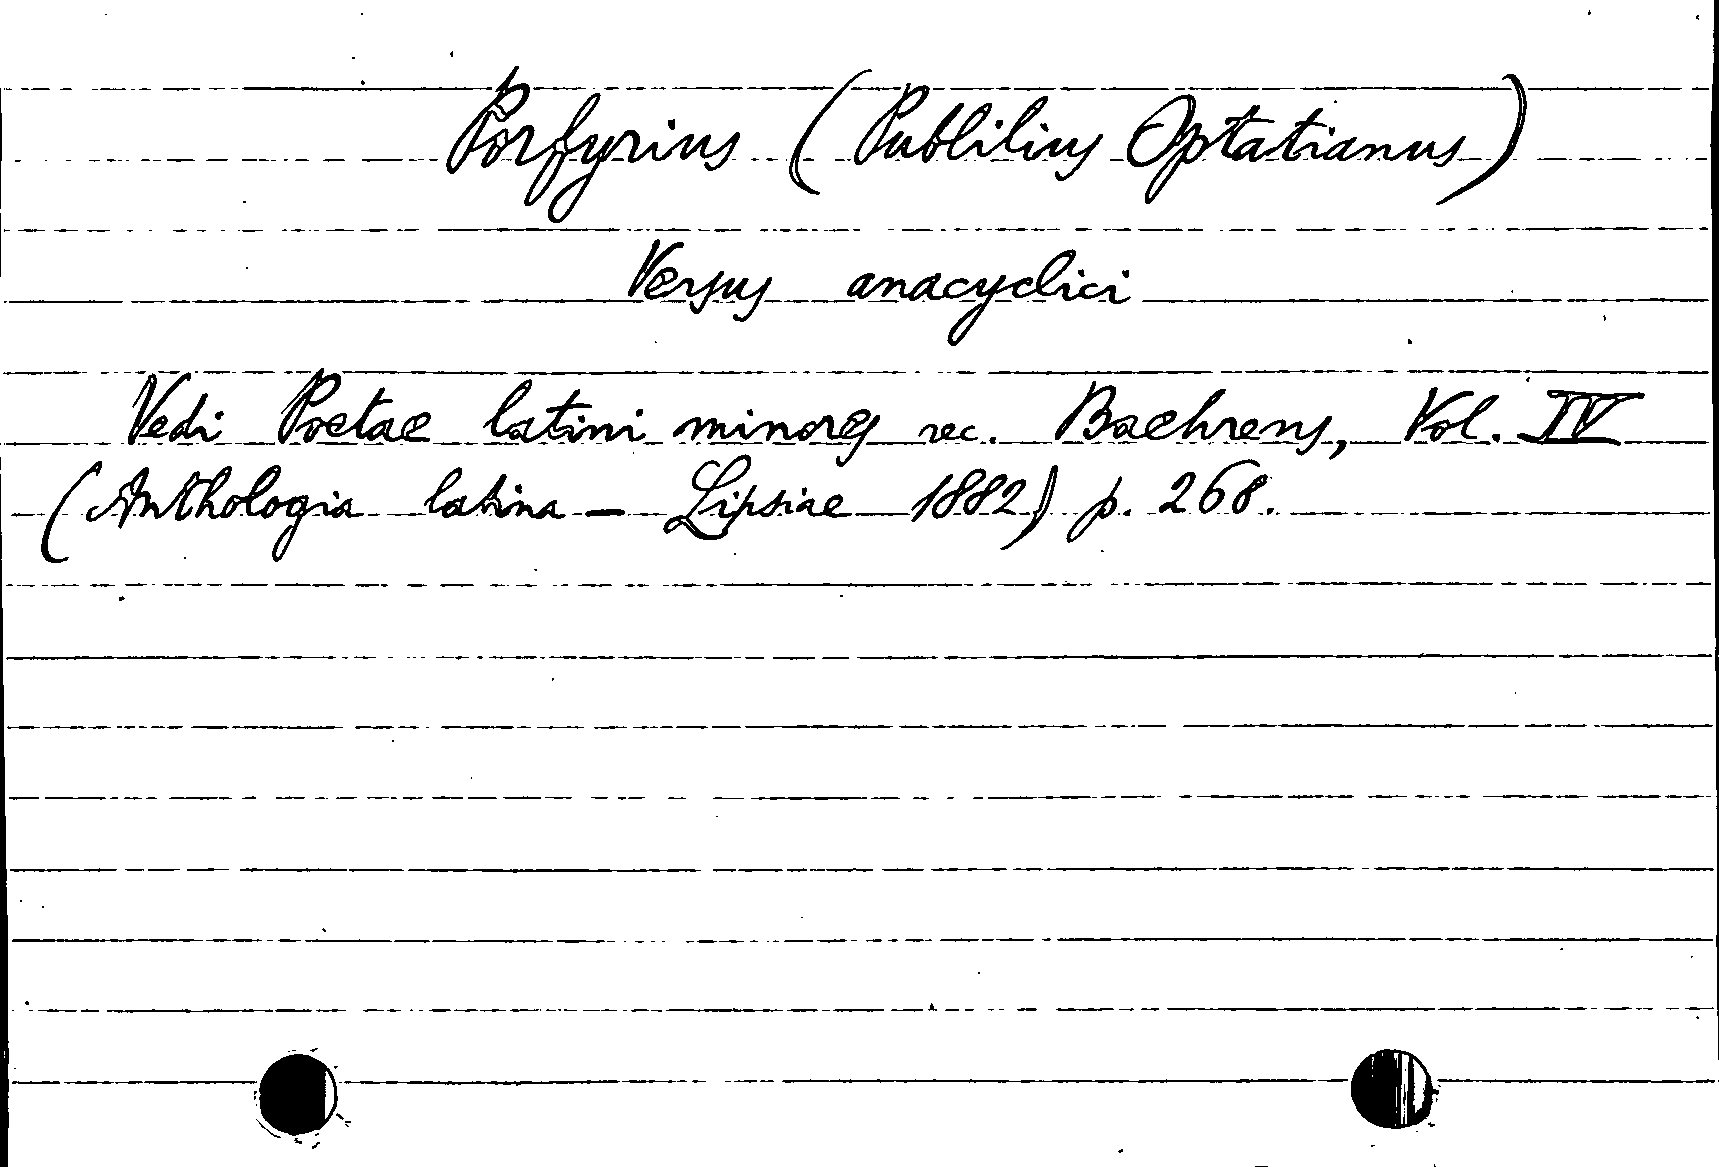 Porfyrius (Publilius Optatianus)
Versus anacyclici
Vedi Poetae latini minores rec. Baehrens, Vol. IV
(Anthologia latina - Lipsiae 1882) p. 268.